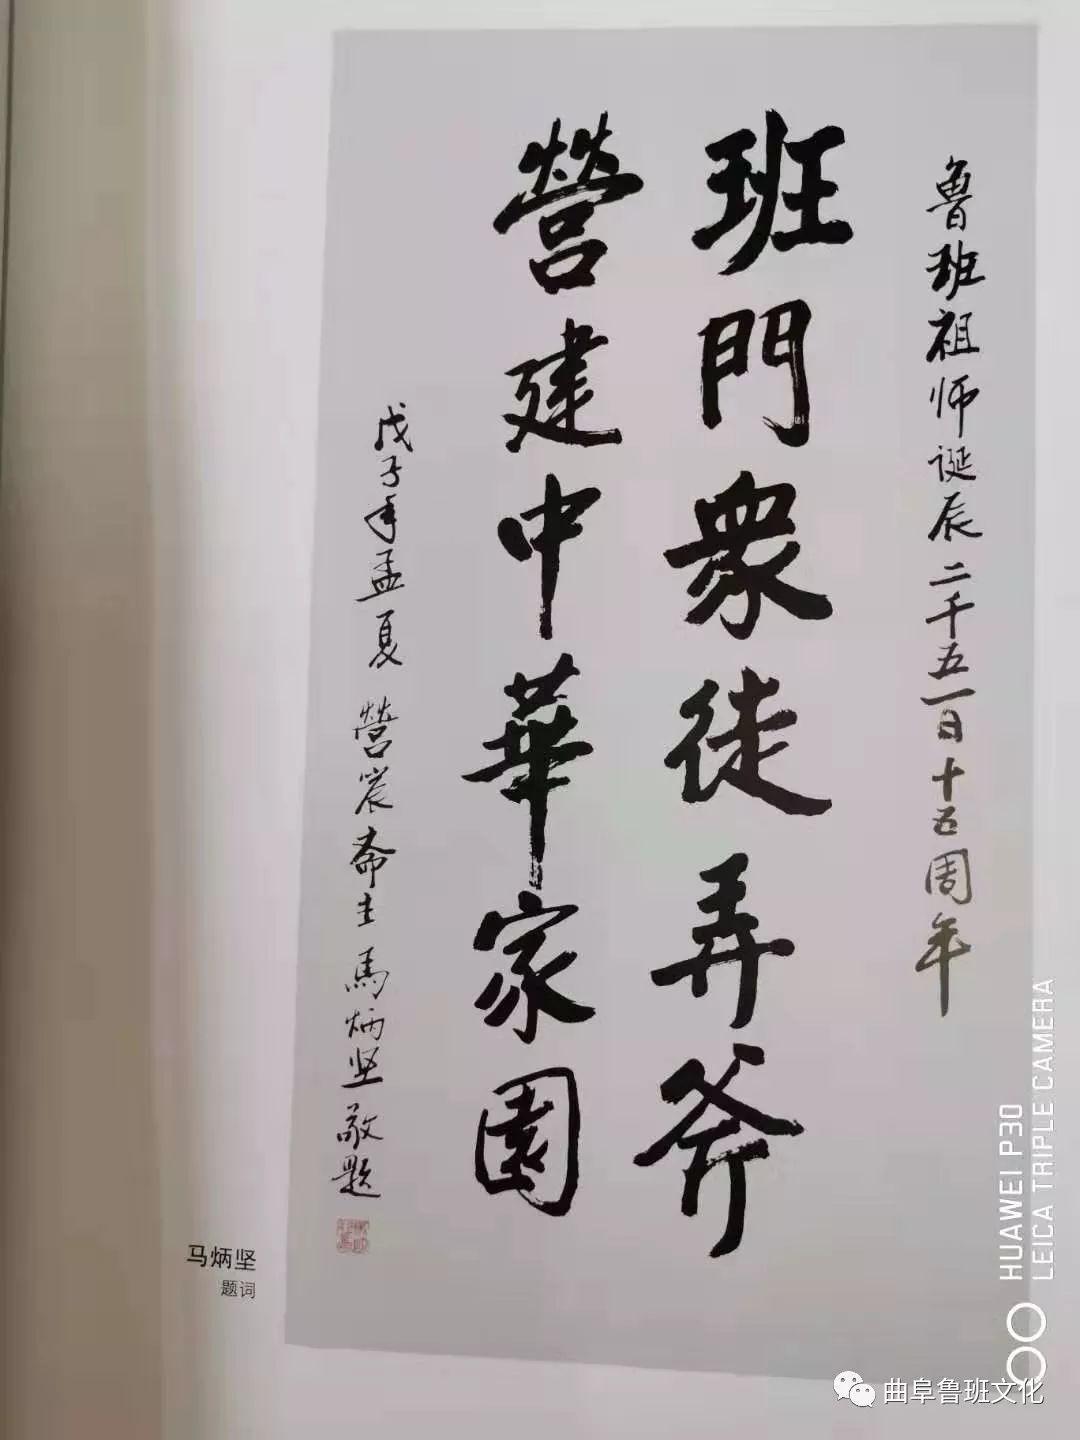 鲁班祖师诞辰二千五百十五周年
班門衆徒弄斧
營建中華家園
戊子年孟夏 營宸斋主馬炳坚敬题
马炳坚
题词
HUAWEI P30
LEICA TRIPLE CAMERA
曲阜鲁班文化